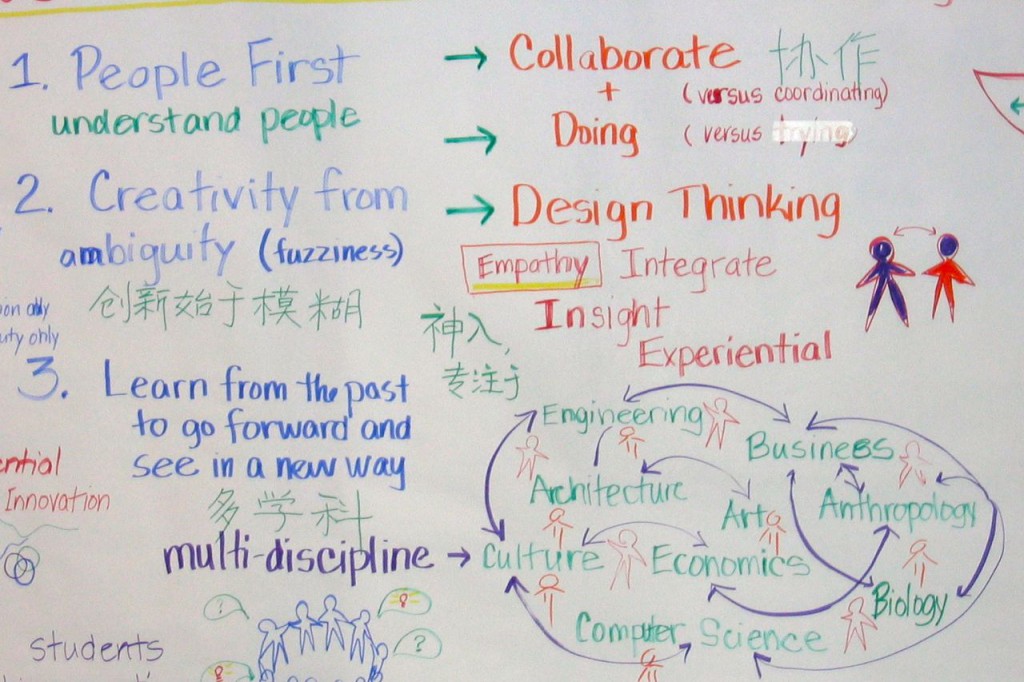 1. People First → Collaborate 协作
understand people
+ (versus coordinating)
→ Doing (versus trying)
2. Creativity from → Design Thinking
ambiguity (fuzziness)
Empathy Integrate
创新始于模糊
Insight
神入,
Experiential
专注于
only
only
3. Learn from the past
to go forward and
see in a new way
Innovation
多学科
multi-discipline →
Engineering
Business
Architecture
Art
Anthropology
Culture
Economics
Biology
Computer Science
students
!
?